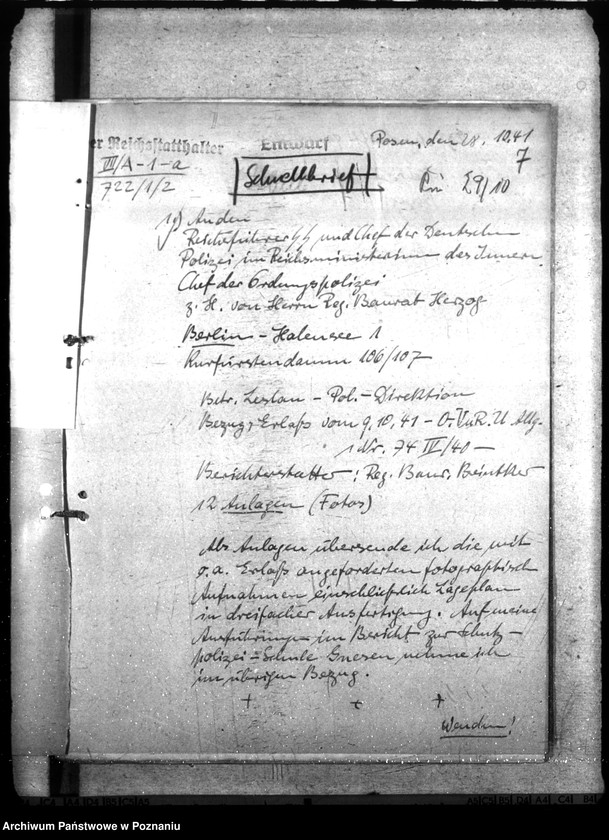 er Reichsstatthalter
Entwurf
Posen, den 28. 10.41
III/A-1-a
7
722/1/2
Schnellbrief
29/10
1.) An den
Reichsführer SS und Chef der Deutschen
Polizei im Reichsministerium des Innern
Chef der Ordnungspolizei
z. H. von Herrn Reg. Baurat Herzog
Berlin - Halensee 1
Kurfürstendamm 106/107
Betr. Leslau - Pol.- Direktion
Bezug: Erlaß vom 9.10.41 - O. VuR. U Allg.
Nr. 74 IV/40 -
Berichterstatter: Reg. Baur. Beintker
12 Anlagen (Fotos)
Als Anlagen übersende ich die mit
o.a. Erlaß angeforderten fotographisch
Aufnahmen einschließlich Lageplan
in dreifacher Ausfertigung. Auf meine
Ausführungen im Bericht zur Schutz-
polizei=Schule Gnesen nehme ich
im übrigen Bezug.
+ + +
Wenden!
Archiwum Państwowe w Poznaniu